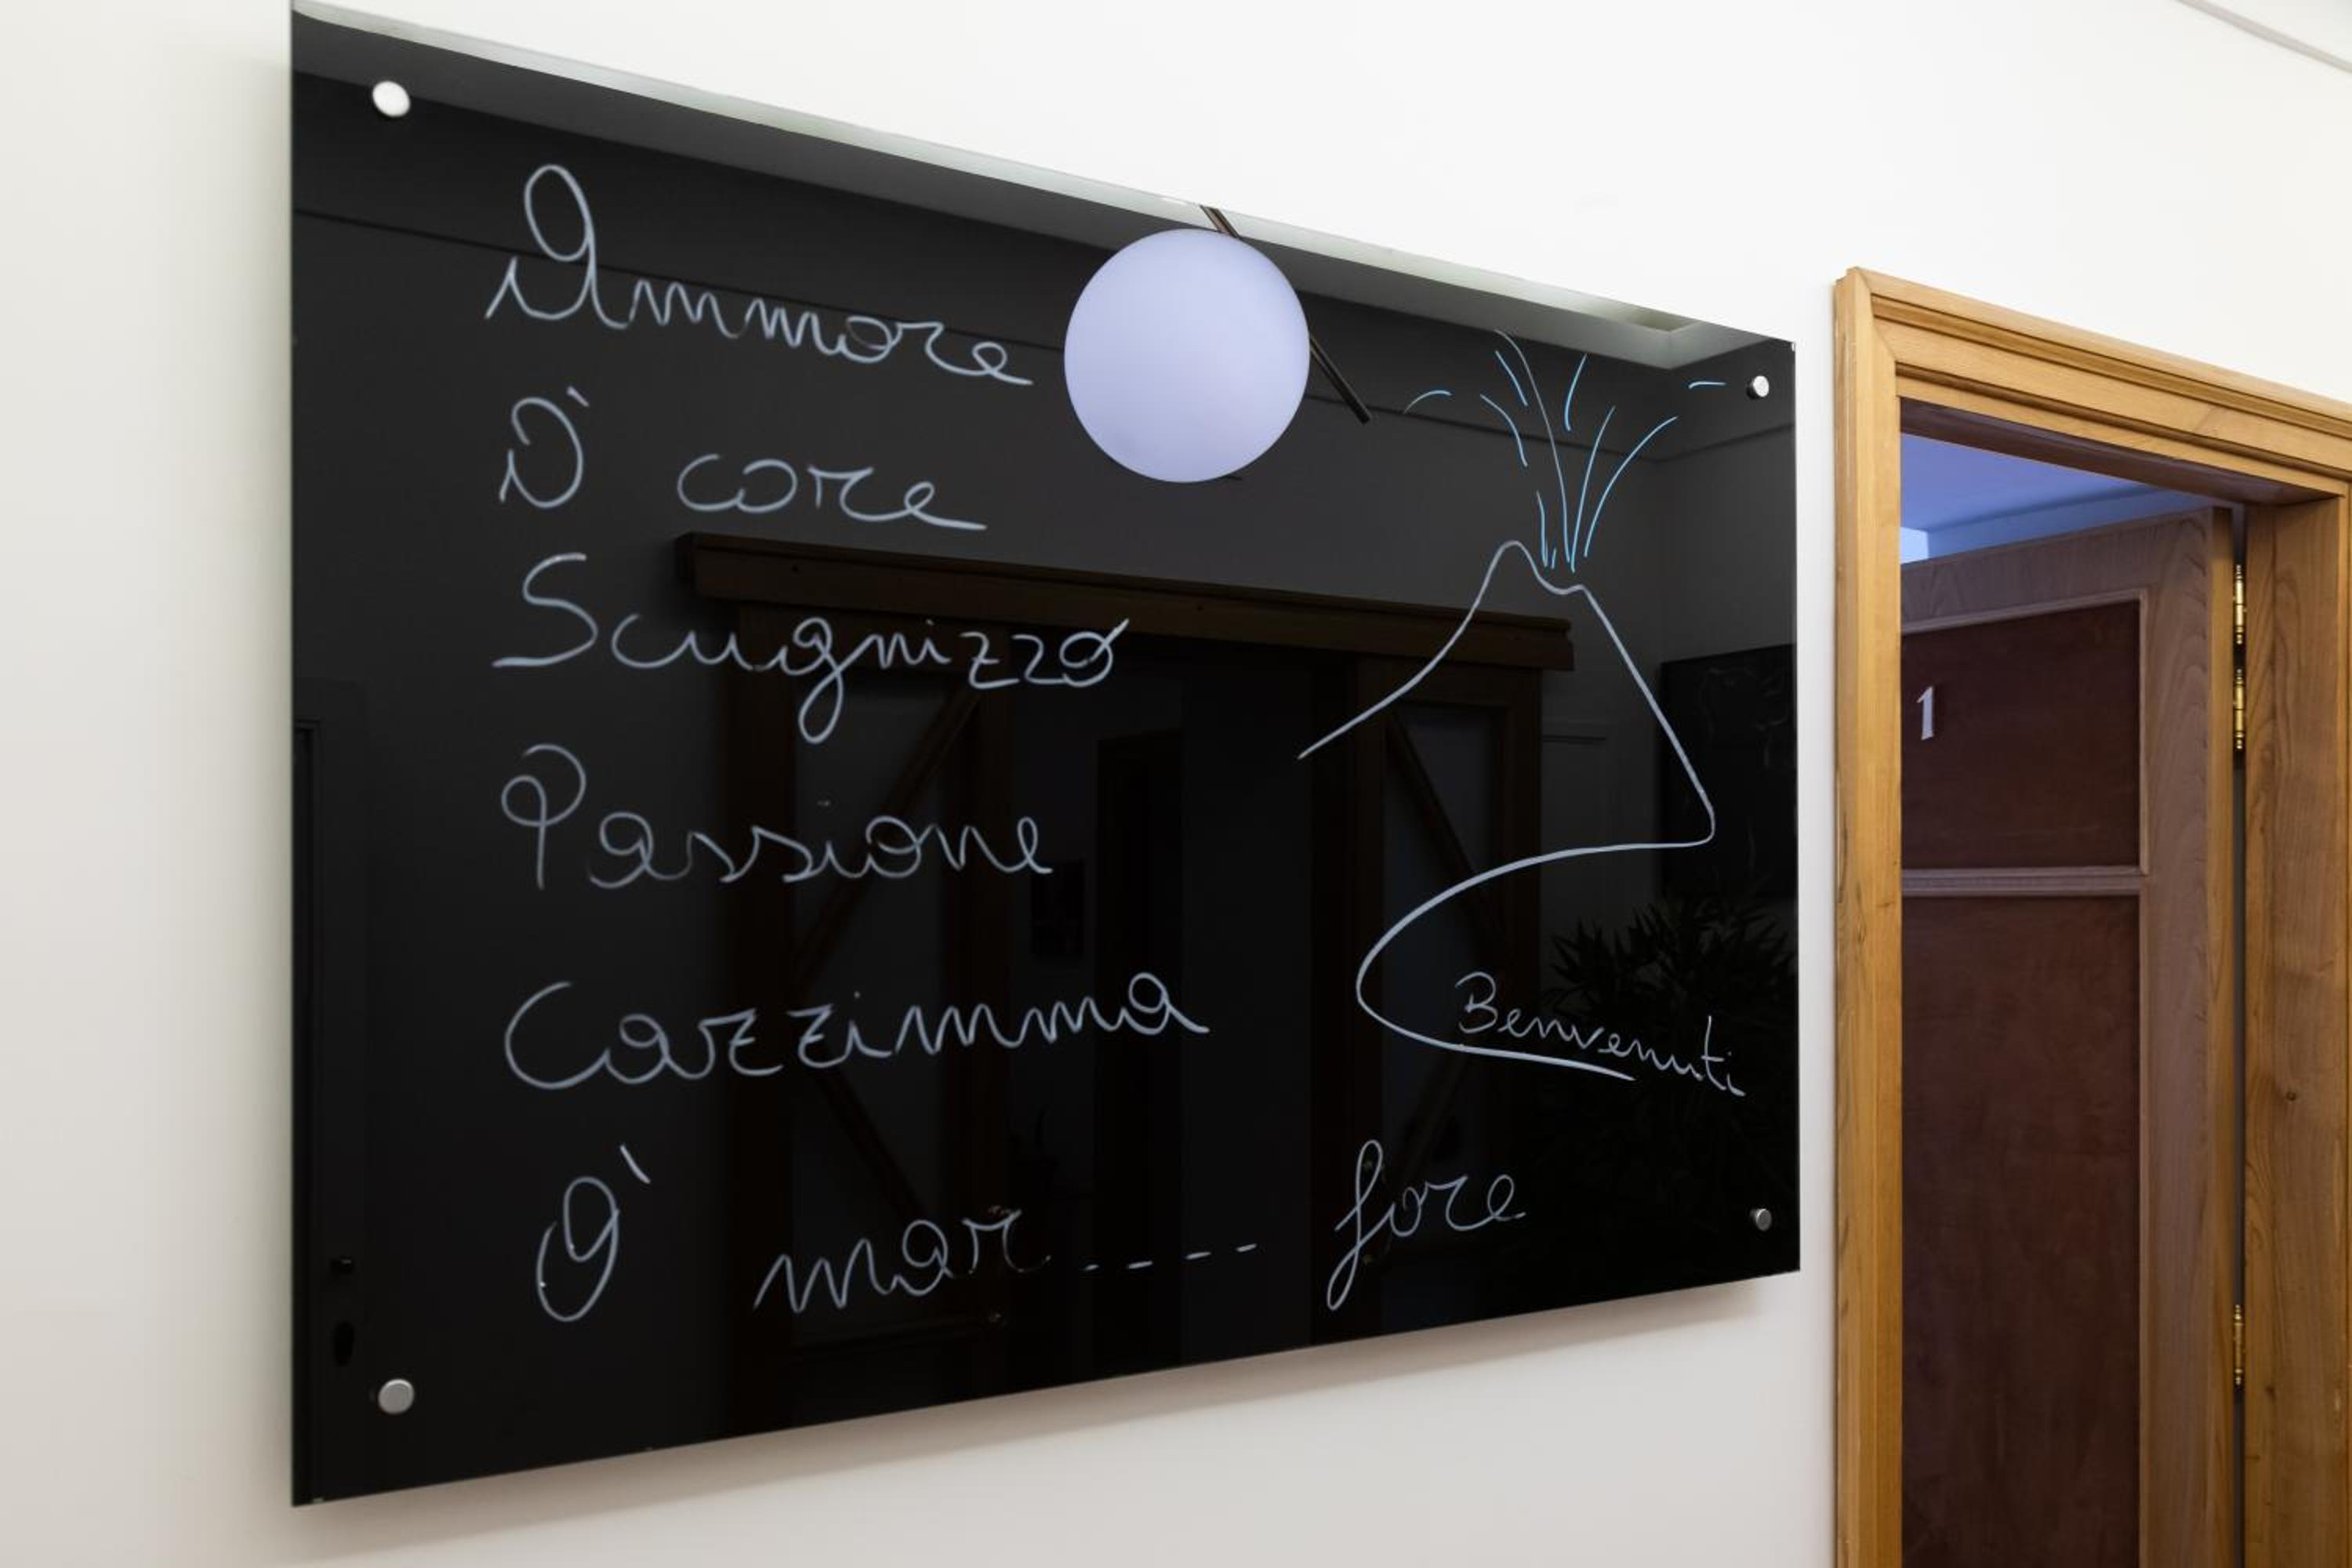 Ammore
O' core
Scugnizzo
Passione
Cazzimma
Benvenuti
O' mar.... fore
1